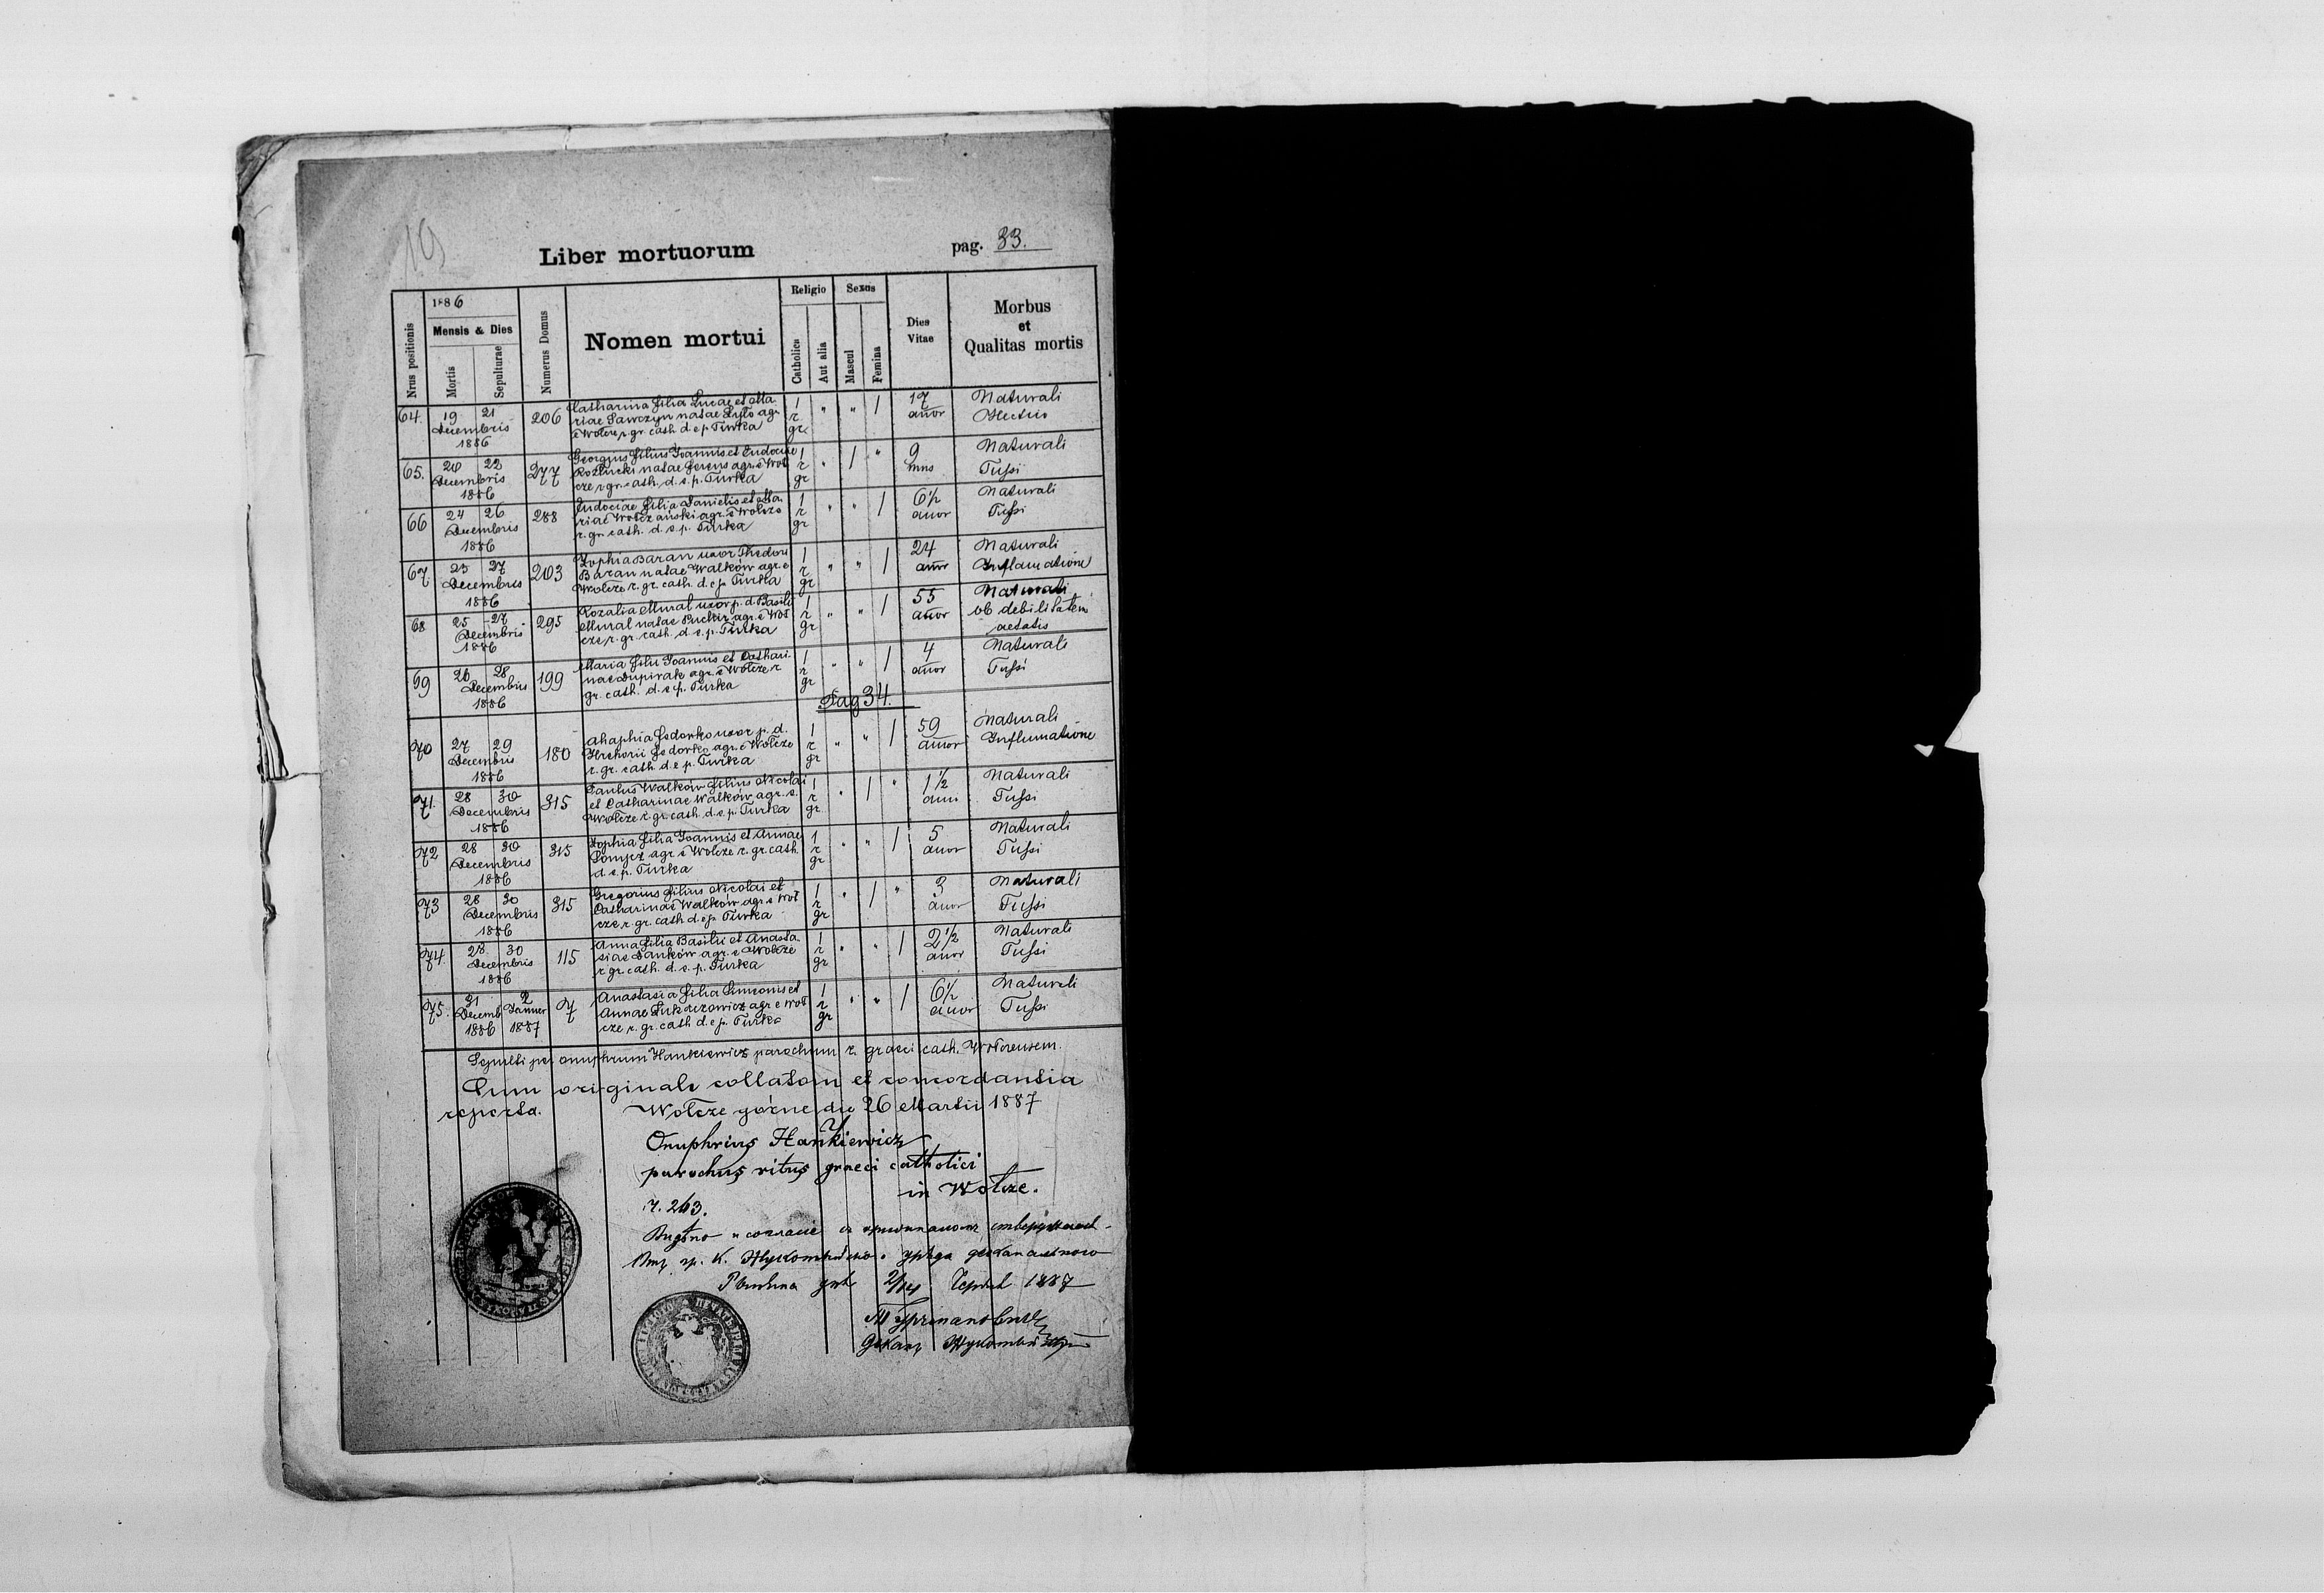 19
Liber mortuorum
pag. 33.
Nrus positionis
1886
Mensis & Dies
Mortis
Sepulturae
Numerus Domus
Nomen mortui
Religio
Catholica
Aut alia
Sexus
Mascul
Femina
Dies
Vitae
Morbus
et
Qualitas mortis
64. 19 21 Decembris 1886 206
Catharina filia Lucae et Ma
riae Sawczyn natae Lylo agr
e Wołcze r. gr. cath. d. e p. Turka
1 r. gr. " " 1 17 annor Naturali
65. 20 22 Decembris 1886 277
Georgius filius Joannis et Eudociae
Rozłucki natae Ferens agr. e Woł
cze r. gr. cath. d. e. p. Turka
1 r gr " 1 " 9 mns Naturali Tussi
66 24 26 Decembris 1886 288
Eudociae filia Danielis et Ma
riae Wołczański agr. e Wołcze
r. gr. cath. d. e. p. Turka
1 r gr " " 1 6½ annor Naturali Tussi
67 25 27 Decembris 1886 203
Zophia Baran uxor Thedori
Baran natae Walków agr. e
Wołcze r. gr. cath. d. e p. Turka
1 r gr " " 1 24 annor Naturali Inflamatione
68 25 27 Decembris 1886 295
Rozalia Mural uxor p. d. Basili
Mural natae Puchir agr. e Woł
cze r. gr. cath. d. e. p. Turka
1 r gr " " 1 55 annor Naturali ob debilitatem aetatis
69 26 28 Decembris 1886 199
Maria filia Joannis et Cathari
nae Dupirak agr. e Wołcze r
gr. cath. d. e p. Turka
1 r gr " " 1 4 annor Naturali Tussi
Pag 34.
70 27 29 Decembris 1886 180
Ahaphia Fedorko uxor p. d.
Hrehorii Fedorko agr. e Wołcze
r. gr. cath. d. e p. Turka
1 r gr " " 1 59 annor Naturali Inflamatione
71. 28 30 Decembris 1886 315
Paulus Walków filius Nicolai
et Catharinae Walków agr. e.
Wołcze r. gr. cath. d. e. p. Turka
1 r gr " 1 " 1½ anni Naturali Tussi
72 28 30 Decembris 1886 315
Zophia filia Joannis et Annae
agr e Wołcze r. gr. cath.
d. e. p. Turka
1 r gr " " 1 5 annor Naturali Tussi
73 28 30 Decembris 1886 315
Gregorius filius Nicolai et
Catharinae Walków agr. e Woł
cze r. gr. cath d. e p. Turka
1 r gr " 1 " 3 annor Naturali Tussi
74. 28 30 Decembris 1886 115
Anna filia Basilii et Anasta
siae Danków agr. e Wołcze
r gr. cath. d. e. p. Turka
1 r gr " " 1 2½ annor Naturali Tussi
75. 31 Decemb 1886 2 Januar 1887 7
Anastasia filia Simeonis et
Annae Łukaczowicz agr e Woł
cze r. gr. cath d. e p. Turka
1 r gr " " 1 6½ annor Naturali Tussi
Sepulti per Onuphrium Hankiewicz parochum r. graeci cath. Wołczensem.
Cum originale collatom et concordantia
reperta. Wołcze górne die 26 Martii 1887
Onuphrius Hankiewicz
parochus ritus graeci catholici
in Wołcze.
Ч. 263.
1887